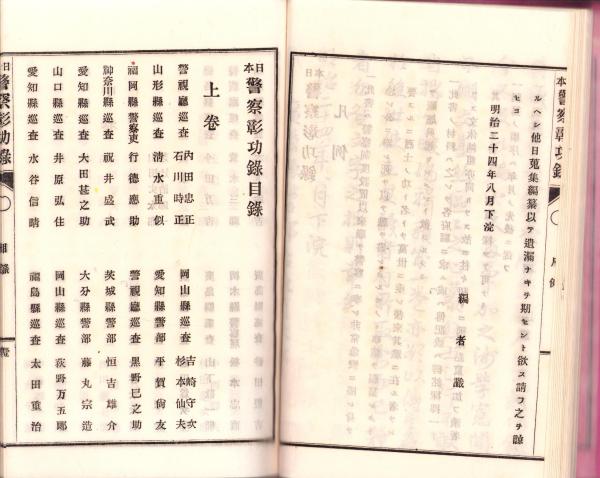 日本警察彰功錄
凡例
ルヘシ他日蒐集編纂以テ遺漏ナキヲ期セント欲ス請フ之ヲ諒
セヨ
明治二十四年八月下浣
編者識
日本警察彰功錄目錄
上卷
警視廳巡査 內田忠正
石川時正
山形縣巡査 清水重似
福岡縣警察吏 行德應助
神奈川縣巡査 祝井盛武
愛知縣巡査 大田甚之助
山口縣巡査 井原弘住
愛知縣巡査 水谷信晴
岡山縣巡査 吉崎守次
杉本仙夫
愛知縣警部 平賀尙友
警視廳巡査 黑野巳之助
茨城縣警部 恒吉雄介
大分縣警部 藤丸宗造
岡山縣巡査 荻野万五郎
福島縣巡査 太田重治
日本警察彰功錄
目錄